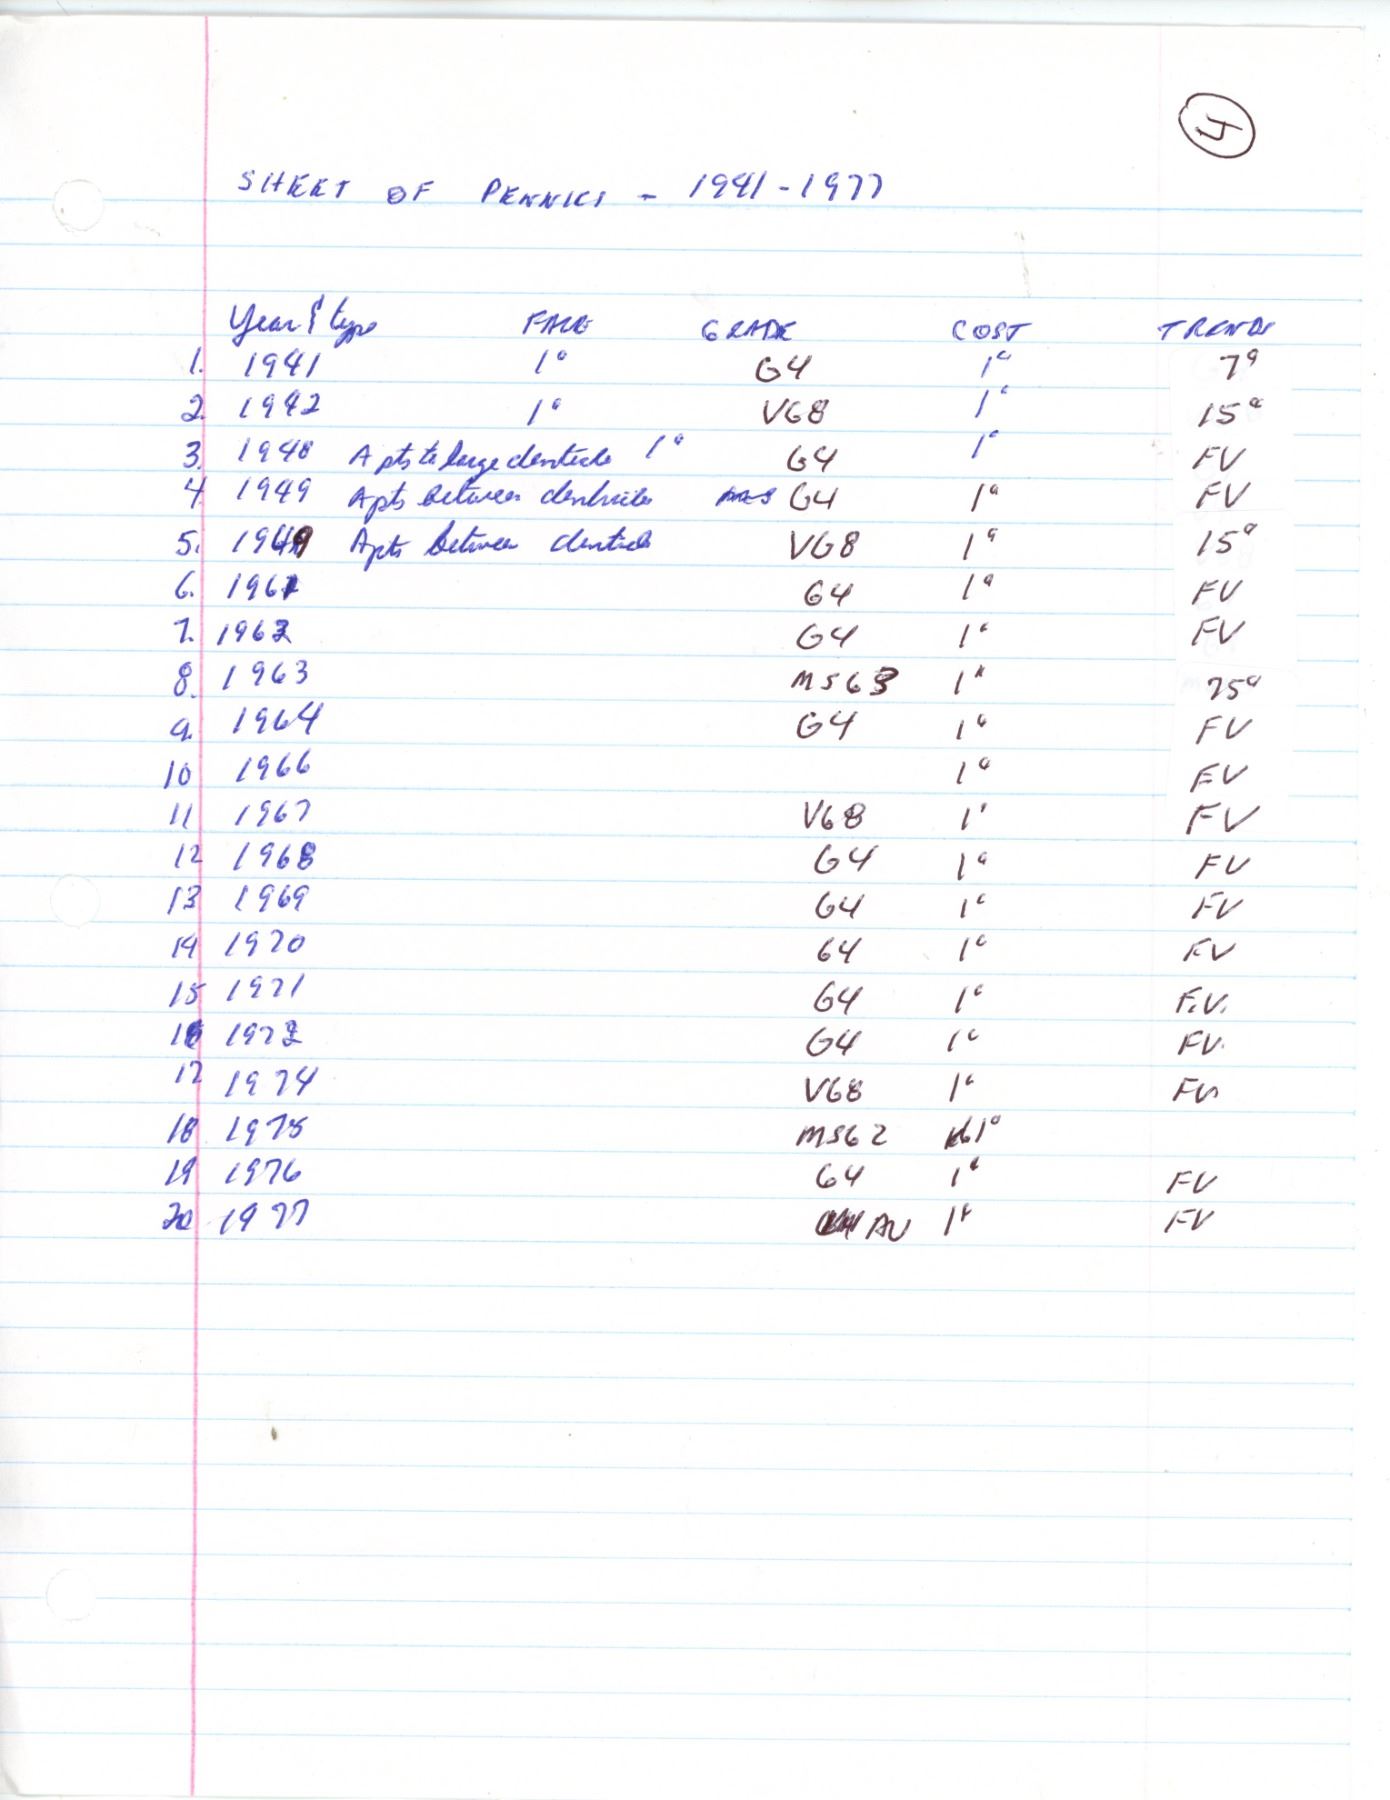 4
SHEET OF PENNIES - 1941-1977
Year & type FACE GRADE COST TRENDS
1. 1941 1¢ G4 1¢ 7¢
2. 1942 1¢ VG8 1¢ 15¢
3. 1948 A pts to large denticle 1¢ G4 1¢ FV
4. 1949 A pts between denticles G4 1¢ FV
5. 1949 A pts between denticle VG8 1¢ 15¢
6. 1961 G4 1¢ FV
7. 1962 G4 1¢ FV
8. 1963 MS63 1¢ 25¢
9. 1964 G4 1¢ FV
10 1966 1¢ FV
11 1967 VG8 1¢ FV
12 1968 G4 1¢ FV
13 1969 G4 1¢ FV
14 1970 G4 1¢ FV
15 1971 G4 1¢ F.V.
16 1972 G4 1¢ FV.
17 1974 VG8 1¢ FV
18 1975 MS62 1¢
19 1976 G4 1¢ FV
20 1977 AU 1¢ FV